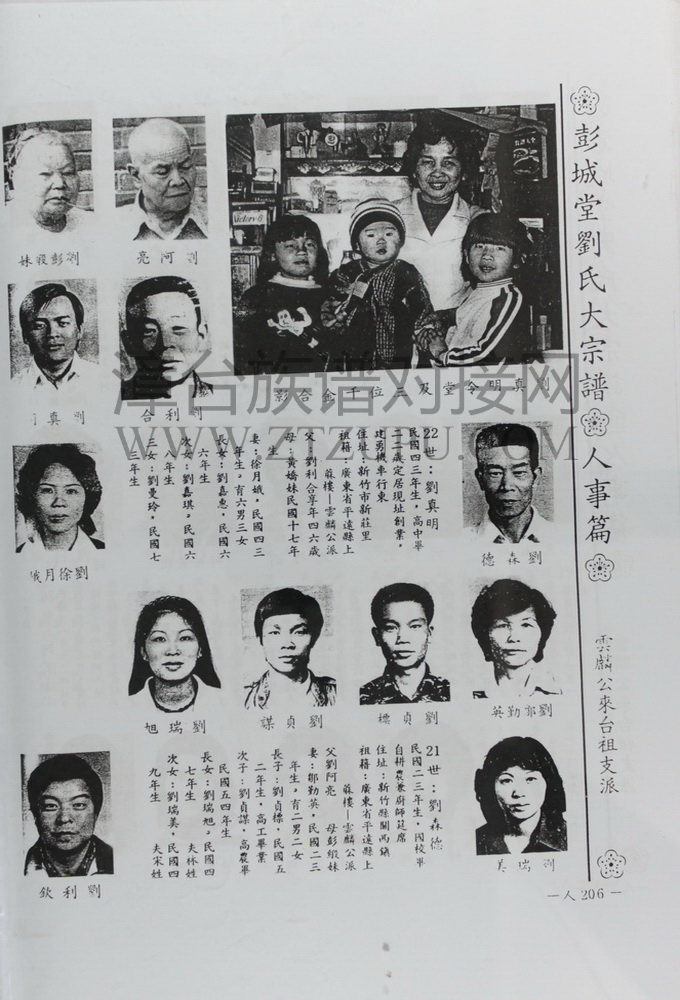 彭城堂劉氏大宗譜
人事篇
雲麟公來台祖支派
—人206—
劉真明令堂及三位千金合影
劉河亮
劉彭緞妹
劉利合
劉真明
劉森德
22世:劉真明
民國四三年生,高中畢
二二歲定居現址創業,
建勇機車行東
住址:新竹市新莊里
祖籍:廣東省平遠縣上
蘇樓—雲麟公派
父:劉利合享年四六歲
母:黃嬌妹民國十七年
生
妻:徐月娥,民國四三
年生。有六男三女
長女:劉嘉惠,民國六
六年生
次女:劉嘉琪,民國六
八年生
三女:劉曼玲,民國七
三年生
劉徐月娥
劉鄒勤英
劉貞標
劉貞謀
劉瑞旭
劉瑞美
21世:劉森德
民國二三年生,國校畢
自耕農兼廚師筵席
住址:新竹縣關西鎮
祖籍:廣東省平遠縣上
蘇樓—雲麟公派
父劉阿亮 母彭緞妹
妻:鄒勤英,民國二三
年生。有二男二女
長子:劉貞標,民國五
二年生,高工畢業
次子:劉貞謀,高農畢
民國五四年生
長女:劉瑞旭。民國四
七年生 夫林姓
次女:劉瑞美,民國四
九年生 夫宋姓
劉利欽
漳台族谱对接网
WWW.ZTZUPU.COM